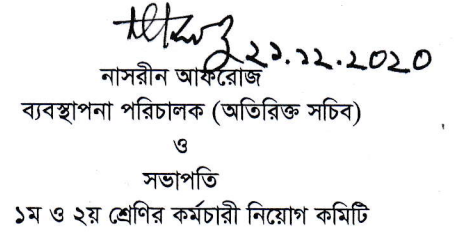 ২১.১২.2020
নাসরীন আফরোজ
ব্যবস্থাপনা পরিচালক (অতিরিক্ত সচিব)
ও
সভাপতি
১ম ও ২য় শ্রেণির কর্মচারী নিয়োগ কমিটি